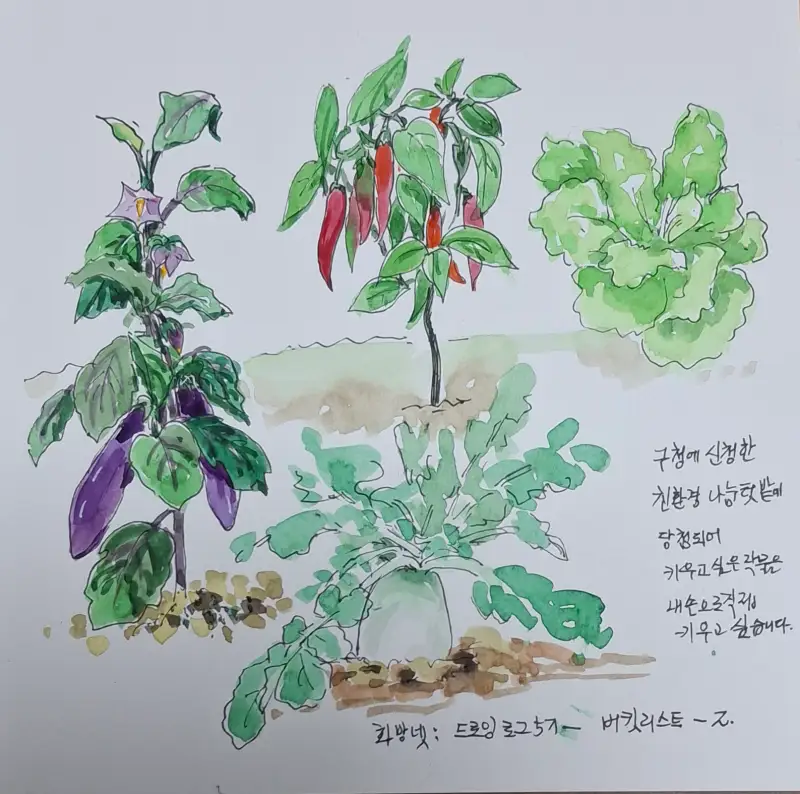 구청에 신청한
친환경 나눔텃밭에
당첨되어
키우고 싶은 작물은
내손으로 직접
키우고 싶습니다.
화방넷: 드로잉로그5기 — 버킷리스트 - 2.